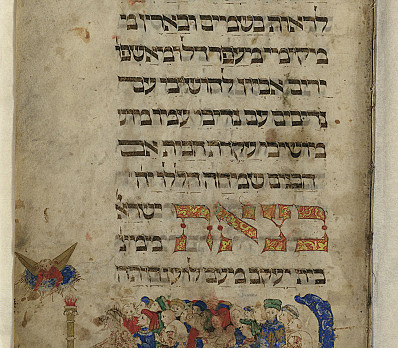 לראות בשמים ובארץ מ
מקימי מעפר דל ומאשפ
ירים אביון להושיבי עם
נדיבים עם נדיבי עמו מוש
מושיבי עקרת הבית אם
הבנים שמחה הללויה
בצאת ישרא
ממצ
בית יעקב מעם לועז היתה